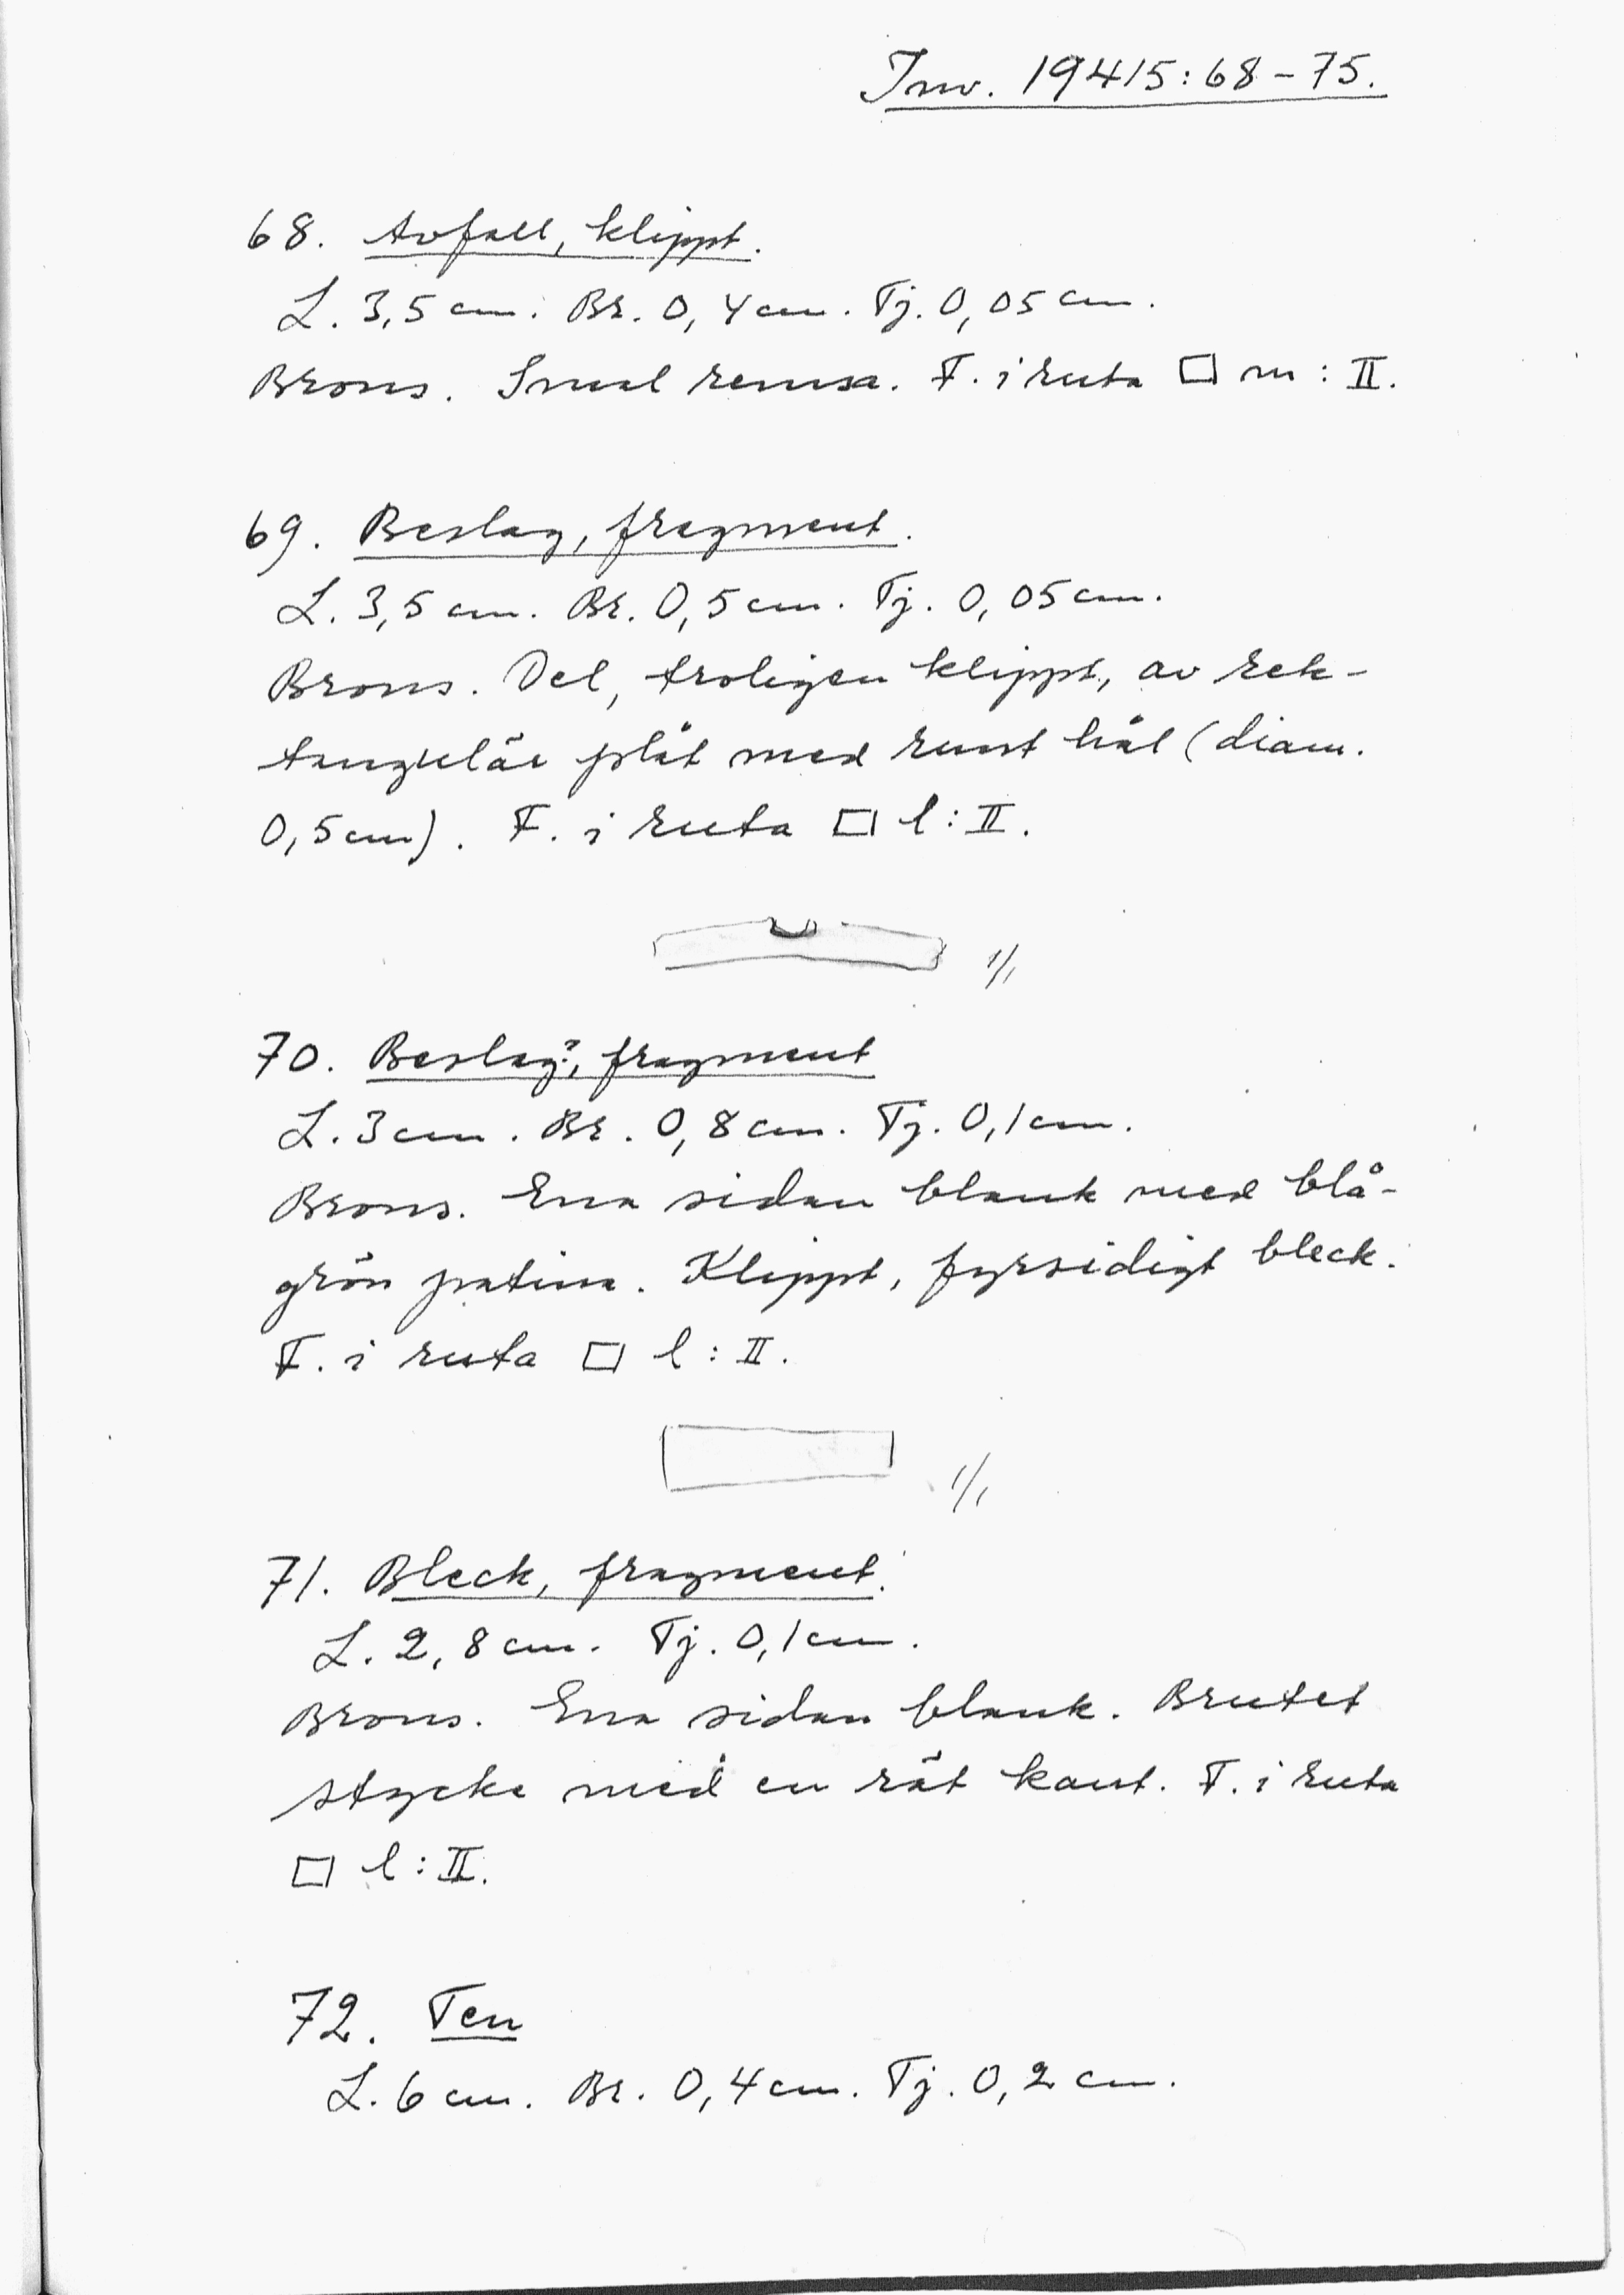 Inv. 19415:68-75.
68. Avfall, klippt.
L. 3,5 cm. Br. 0,4 cm. Tj. 0,05 cm.
Brons. Smal remsa. F. i ruta □ m: II.
69. Beslag, fragment.
L. 3,5 cm. Br. 0,5 cm. Tj. 0,05 cm.
Brons. Del, troligen klippt, av rek-
tangulär plåt med runt hål (diam.
0,5 cm). F. i ruta □ l: II.
1/1
70. Beslag?, fragment
L. 3 cm. Br. 0,8 cm. Tj. 0,1 cm.
Brons. Ena sidan blank med blå-
grön patina. Klippt, fyrsidigt bleck.
F. i ruta □ l: II.
1/1
71. Bleck, fragment.
L. 2,8 cm. Tj. 0,1 cm.
Brons. Ena sidan blank. Brutet
stycke med en rät kant. F. i ruta
□ l: II.
72. Ten
L. 6 cm. Br. 0,4 cm. Tj. 0,2 cm.